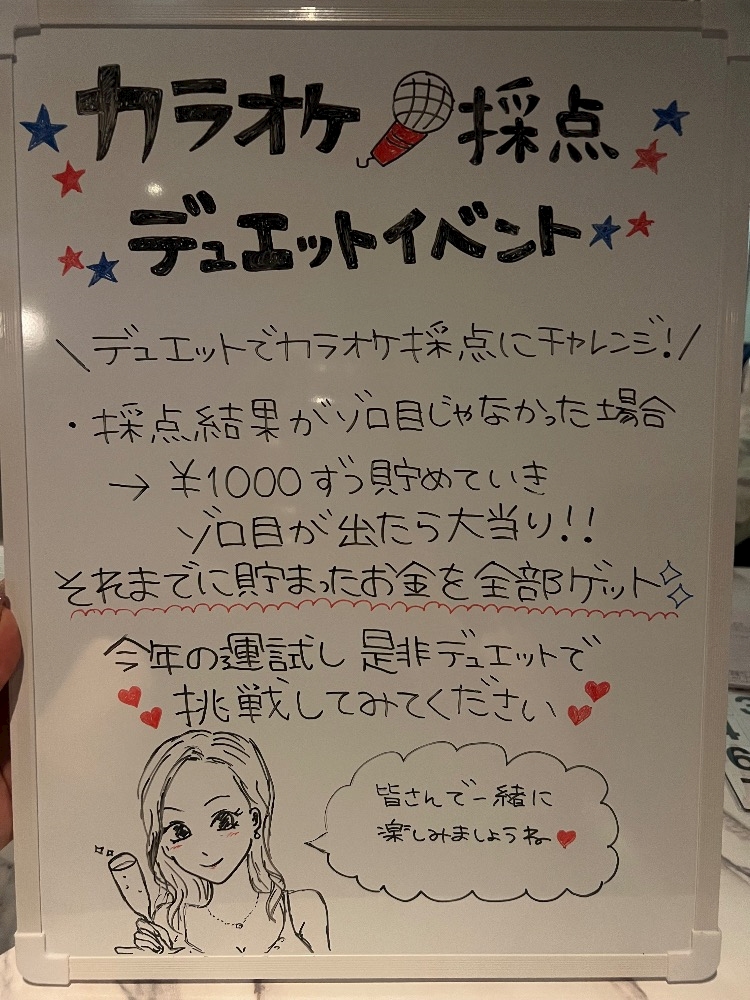 カラオケ採点
デュエットイベント
\デュエットでカラオケ採点にチャレンジ!/
・採点結果がゾロ目じゃなかった場合
→ ¥1000ずつ貯めていき
ゾロ目が出たら大当り!!
それまでに貯まったお金を全部ゲット
今年の運試し 是非デュエットで
挑戦してみてください
皆さんで一緒に
楽しみましょうね